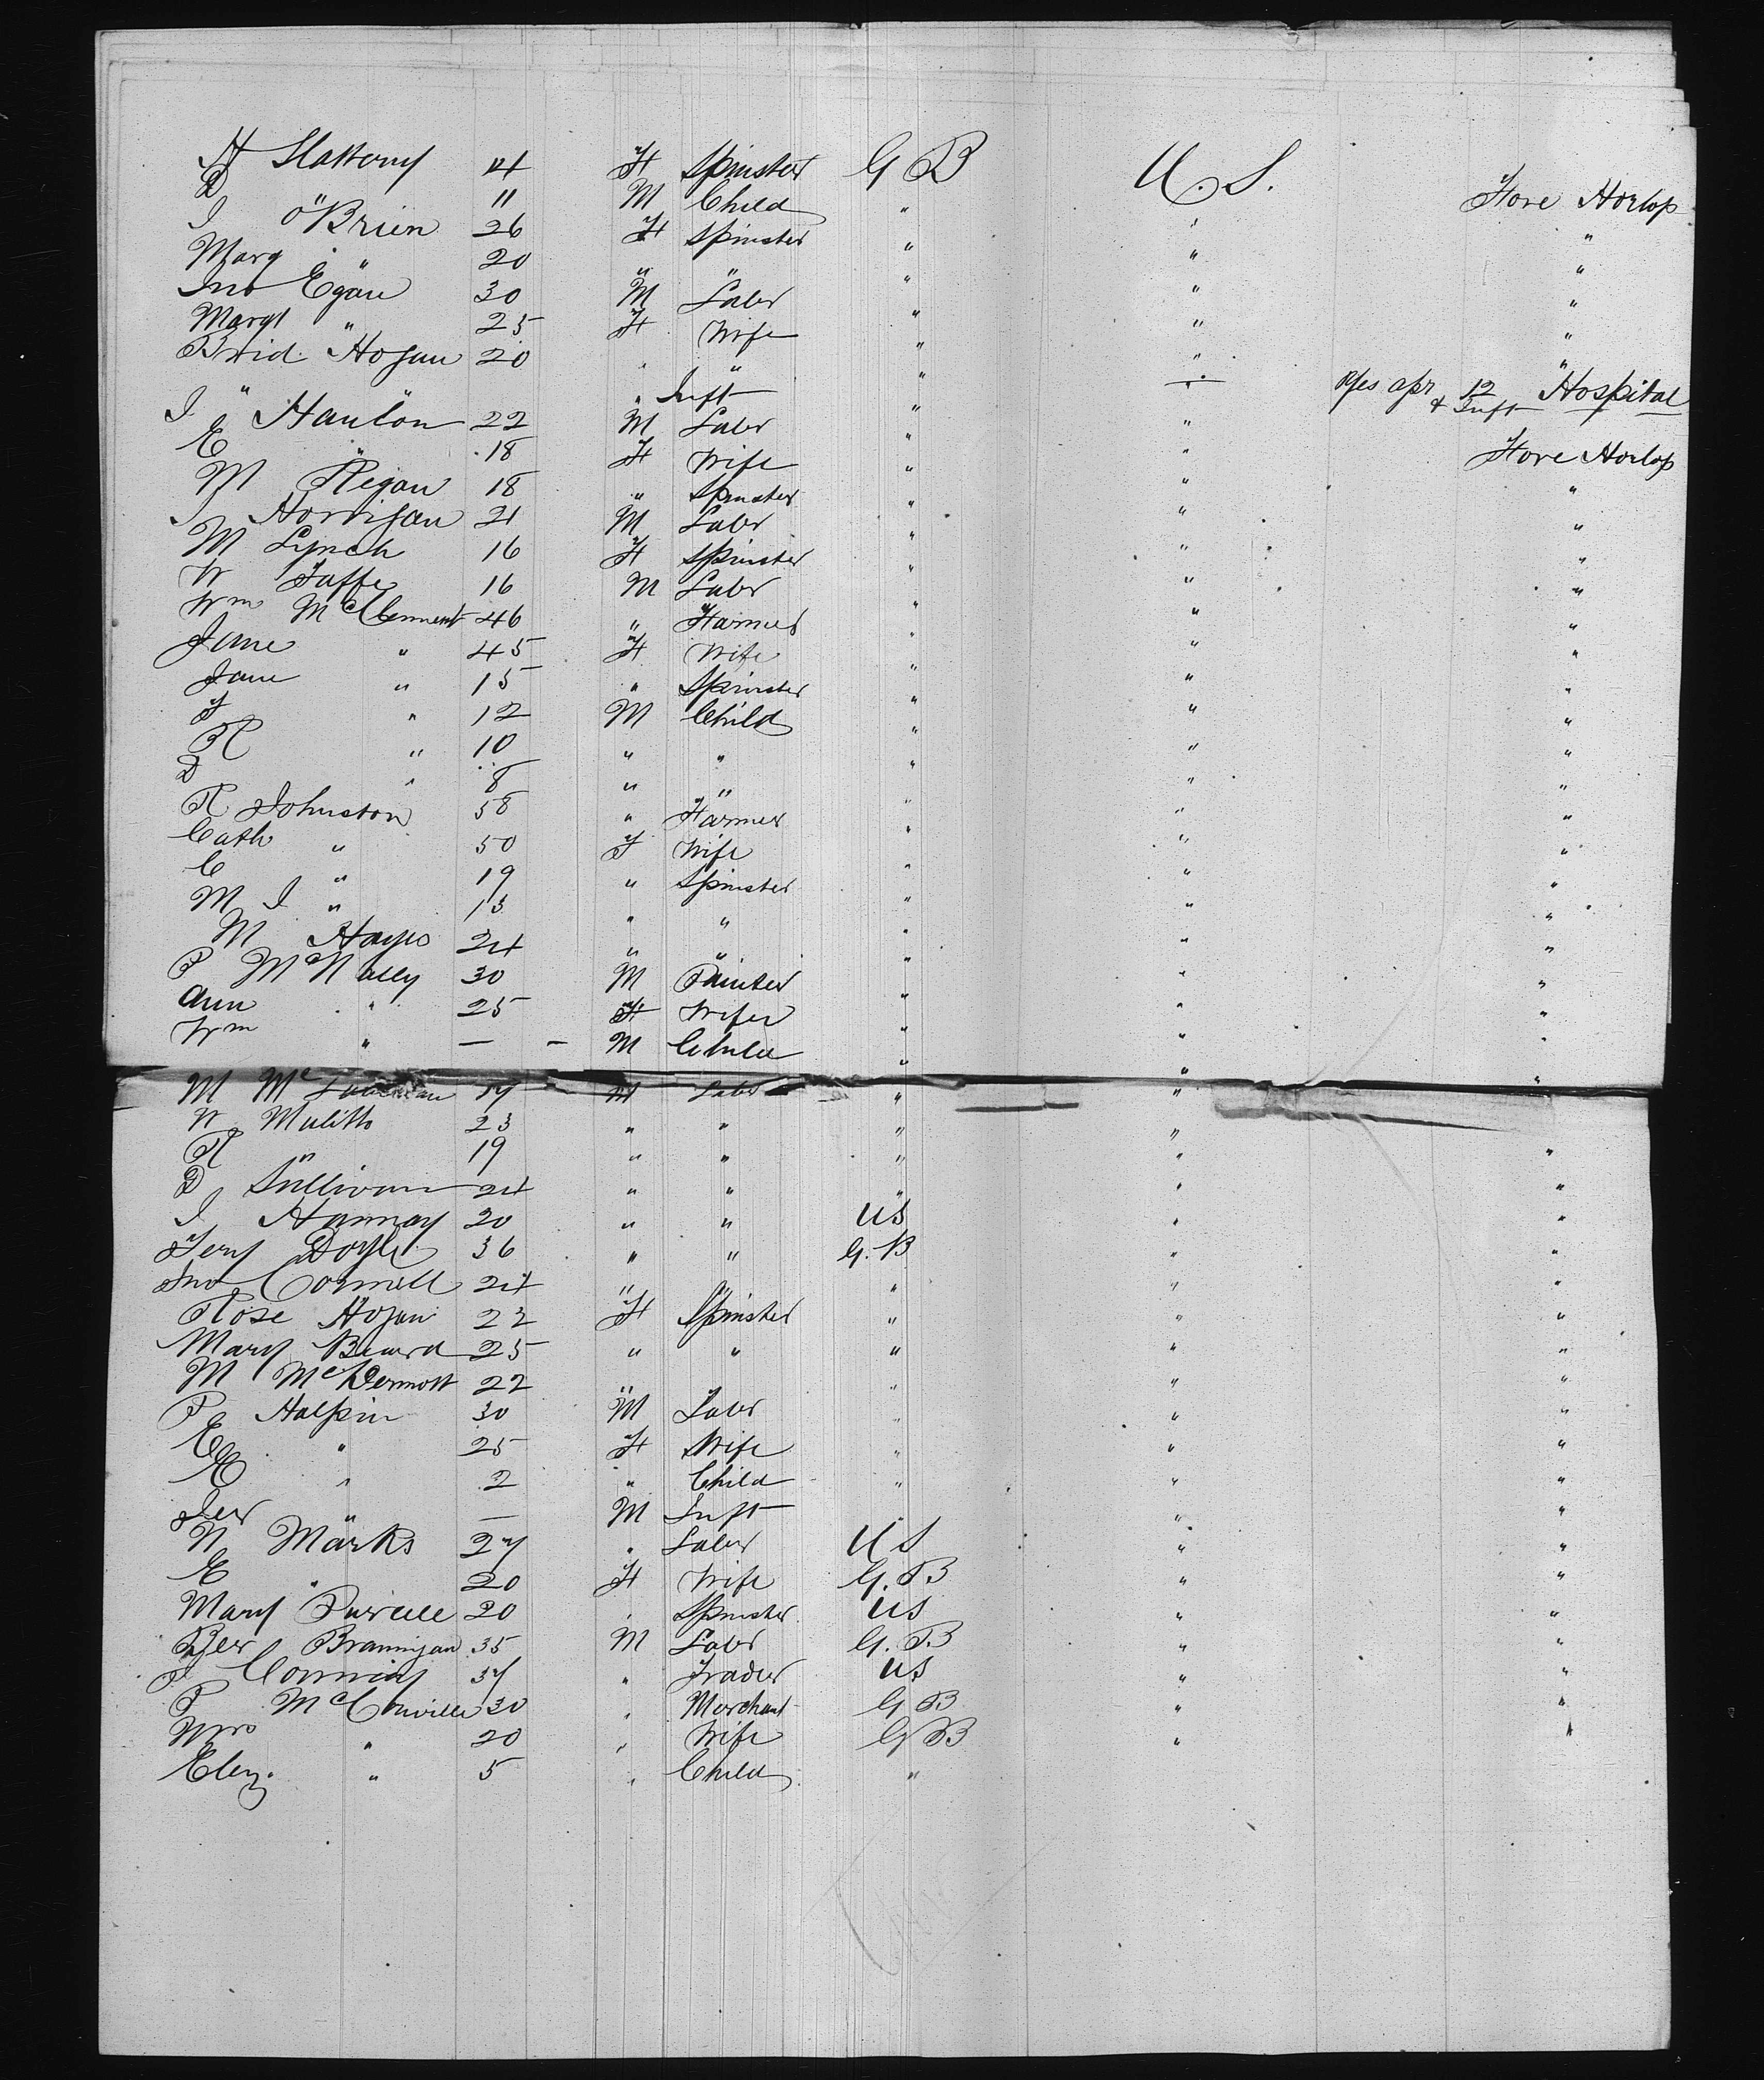 H Slattery 14 F Spinster G B U. S. Fore Horlop
D " 11 M Child " " "
J O'Brien 26 F Spinster " " "
Marg " 20 " " " " "
Jno Egan 30 M Labr " " "
Margt " 25 F Wife " " "
Brid. Hogan 20 " " " " "
" " Inft " " Dies apr 12 & Inft Hospital
J Hanlon 22 M Labr " " Fore Horlop
E " 18 F Wife " " "
M Regan 18 " Spinster " " "
J Horrigan 21 M Labr " " "
M Lynch 16 F Spinster " " "
W Taffe 16 M Labr " " "
Wm McClement 46 " Farmer " " "
Jane " 45 F Wife " " "
Jane " 15 " Spinster " " "
J " 12 M Child " " "
R " 10 " " " " "
D " 8 " " " " "
R Johnston 58 " Farmer " " "
Cath " 50 F Wife " " "
C " 19 " Spinster " " "
M J " 13 " " " " "
M Hayes 24 " " " " "
P McNally 30 M Painter " " "
Ann " 25 F Wife " " "
Wm " — M Child " " "
M Mc 17 M Labr " "
W Mulitt 23 " " " "
R " 19 " " " " "
D Sullivan 24 " " " " "
J Hannay 20 " " US " "
Jery Doyle 36 " " G. B " "
Jno Connell 24 " " " " "
Rose Hogan 22 F Spinster " " "
Mary Beard 25 " " " " "
M McDermott 22 " " " " "
P Halpin 30 M Labr " " "
E " 25 F Wife " " "
E " 2 " Child " " "
Jer " — M Inft " " "
N Marks 27 " Labr U S " "
E " 20 F Wife G. B " "
Mary Purcell 20 " Spinster US " "
Ber Brannigan 35 M Labr G. B " "
37 " Trader US " "
P McConville 30 " Merchant G B " "
Mrs " 20 " Wife G B " "
Eliz. " 5 " Child "